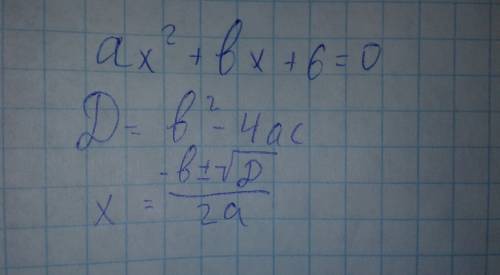 ax² + bx + 6 = 0
D = b² - 4ac
x = -b±√D / 2a